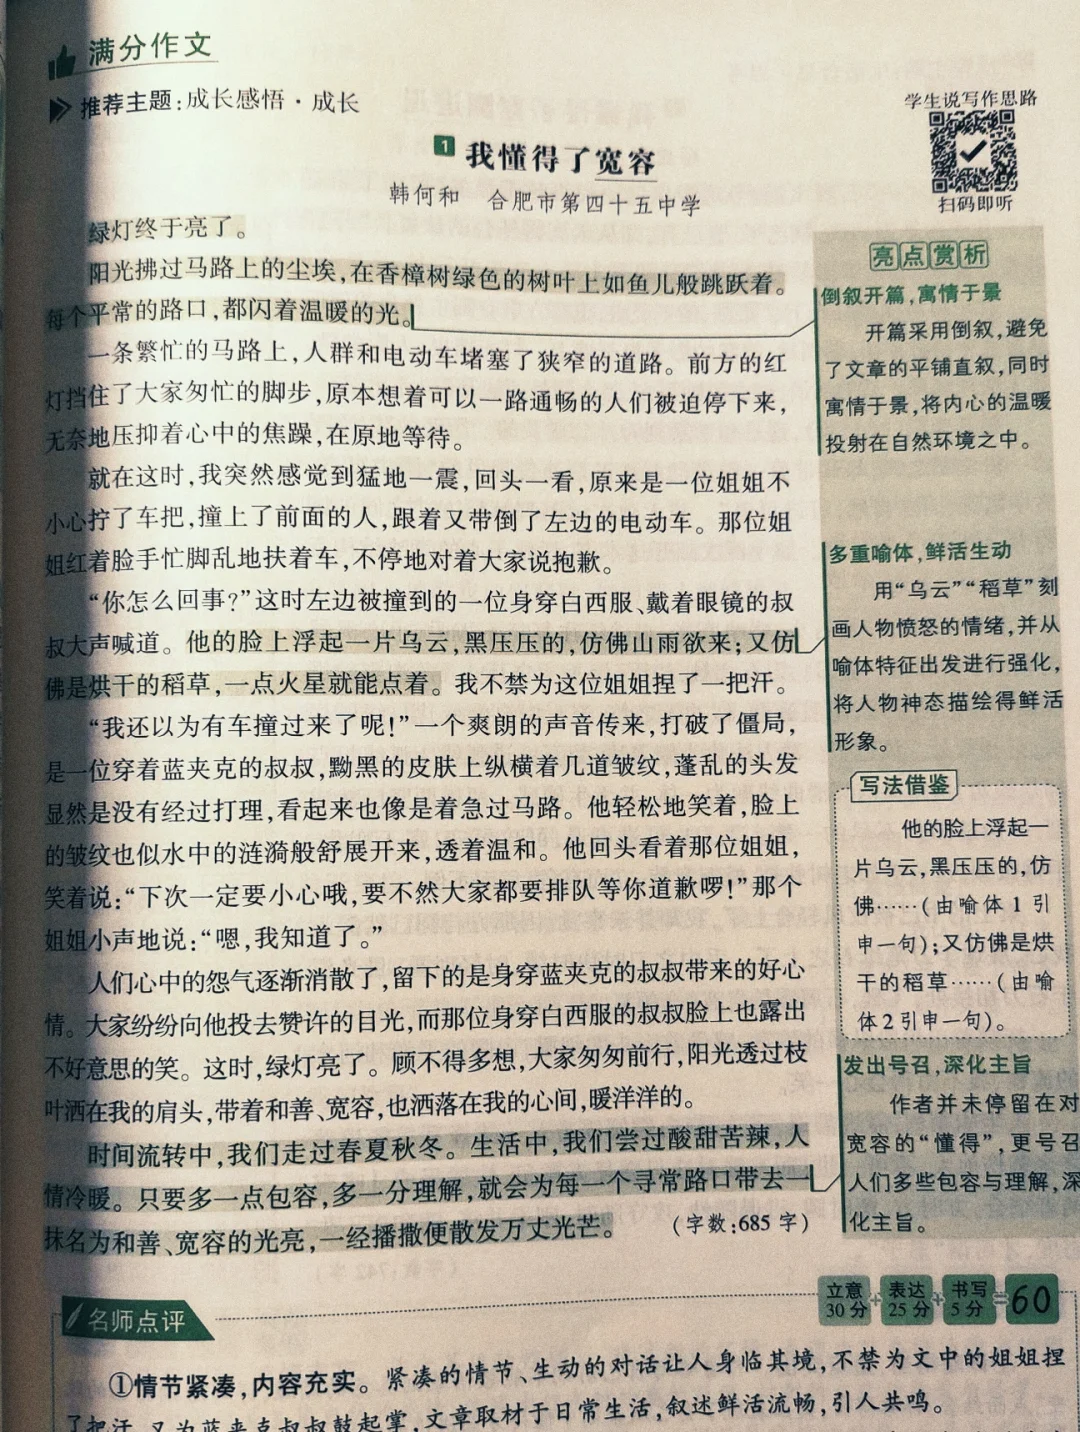 满分作文
推荐主题:成长感悟·成长
学生说写作思路
扫码即听
1 我懂得了宽容
韩何和 合肥市第四十五中学
绿灯终于亮了。
阳光拂过马路上的尘埃,在香樟树绿色的树叶上如鱼儿般跳跃着。
每个平常的路口,都闪着温暖的光。
一条繁忙的马路上,人群和电动车堵塞了狭窄的道路。前方的红
灯挡住了大家匆忙的脚步,原本想着可以一路通畅的人们被迫停下来,
无奈地压抑着心中的焦躁,在原地等待。
就在这时,我突然感觉到猛地一震,回头一看,原来是一位姐姐不
小心拧了车把,撞上了前面的人,跟着又带倒了左边的电动车。那位姐
姐红着脸手忙脚乱地扶着车,不停地对着大家说抱歉。
“你怎么回事?”这时左边被撞到的一位身穿白西服、戴着眼镜的叔
叔大声喊道。他的脸上浮起一片乌云,黑压压的,仿佛山雨欲来;又仿
佛是烘干的稻草,一点火星就能点着。我不禁为这位姐姐捏了一把汗。
“我还以为有车撞过来了呢!”一个爽朗的声音传来,打破了僵局,
是一位穿着蓝夹克的叔叔,黝黑的皮肤上纵横着几道皱纹,蓬乱的头发
显然是没有经过打理,看起来也像是着急过马路。他轻松地笑着,脸上
的皱纹也似水中的涟漪般舒展开来,透着温和。他回头看着那位姐姐,
笑着说:“下次一定要小心哦,要不然大家都要排队等你道歉啰!”那个
姐姐小声地说:“嗯,我知道了。”
人们心中的怨气逐渐消散了,留下的是身穿蓝夹克的叔叔带来的好心
情。大家纷纷向他投去赞许的目光,而那位身穿白西服的叔叔脸上也露出
不好意思的笑。这时,绿灯亮了。顾不得多想,大家匆匆前行,阳光透过枝
叶洒在我的肩头,带着和善、宽容,也洒落在我的心间,暖洋洋的。
时间流转中,我们走过春夏秋冬。生活中,我们尝过酸甜苦辣,人
情冷暖。只要多一点包容,多一分理解,就会为每一个寻常路口带去一
抹名为和善、宽容的光亮,一经播撒便散发万丈光芒。
(字数:685字)
亮点赏析
倒叙开篇,寓情于景
开篇采用倒叙,避免
了文章的平铺直叙,同时
寓情于景,将内心的温暖
投射在自然环境之中。
多重喻体,鲜活生动
用“乌云”“稻草”刻
画人物愤怒的情绪,并从
喻体特征出发进行强化,
将人物神态描绘得鲜活
形象。
写法借鉴
他的脸上浮起一
片乌云,黑压压的,仿
佛……(由喻体1引
申一句);又仿佛是烘
干的稻草……(由喻
体2引申一句)。
发出号召,深化主旨
作者并未停留在对
宽容的“懂得”,更号召
人们多些包容与理解,深
化主旨。
立意30分+表达25分+书写5分=60
名师点评
①情节紧凑,内容充实。紧凑的情节、生动的对话让人身临其境,不禁为文中的姐姐捏
了把汗,又为蓝夹克叔叔鼓起掌,文章取材于日常生活,叙述鲜活流畅,引人共鸣。